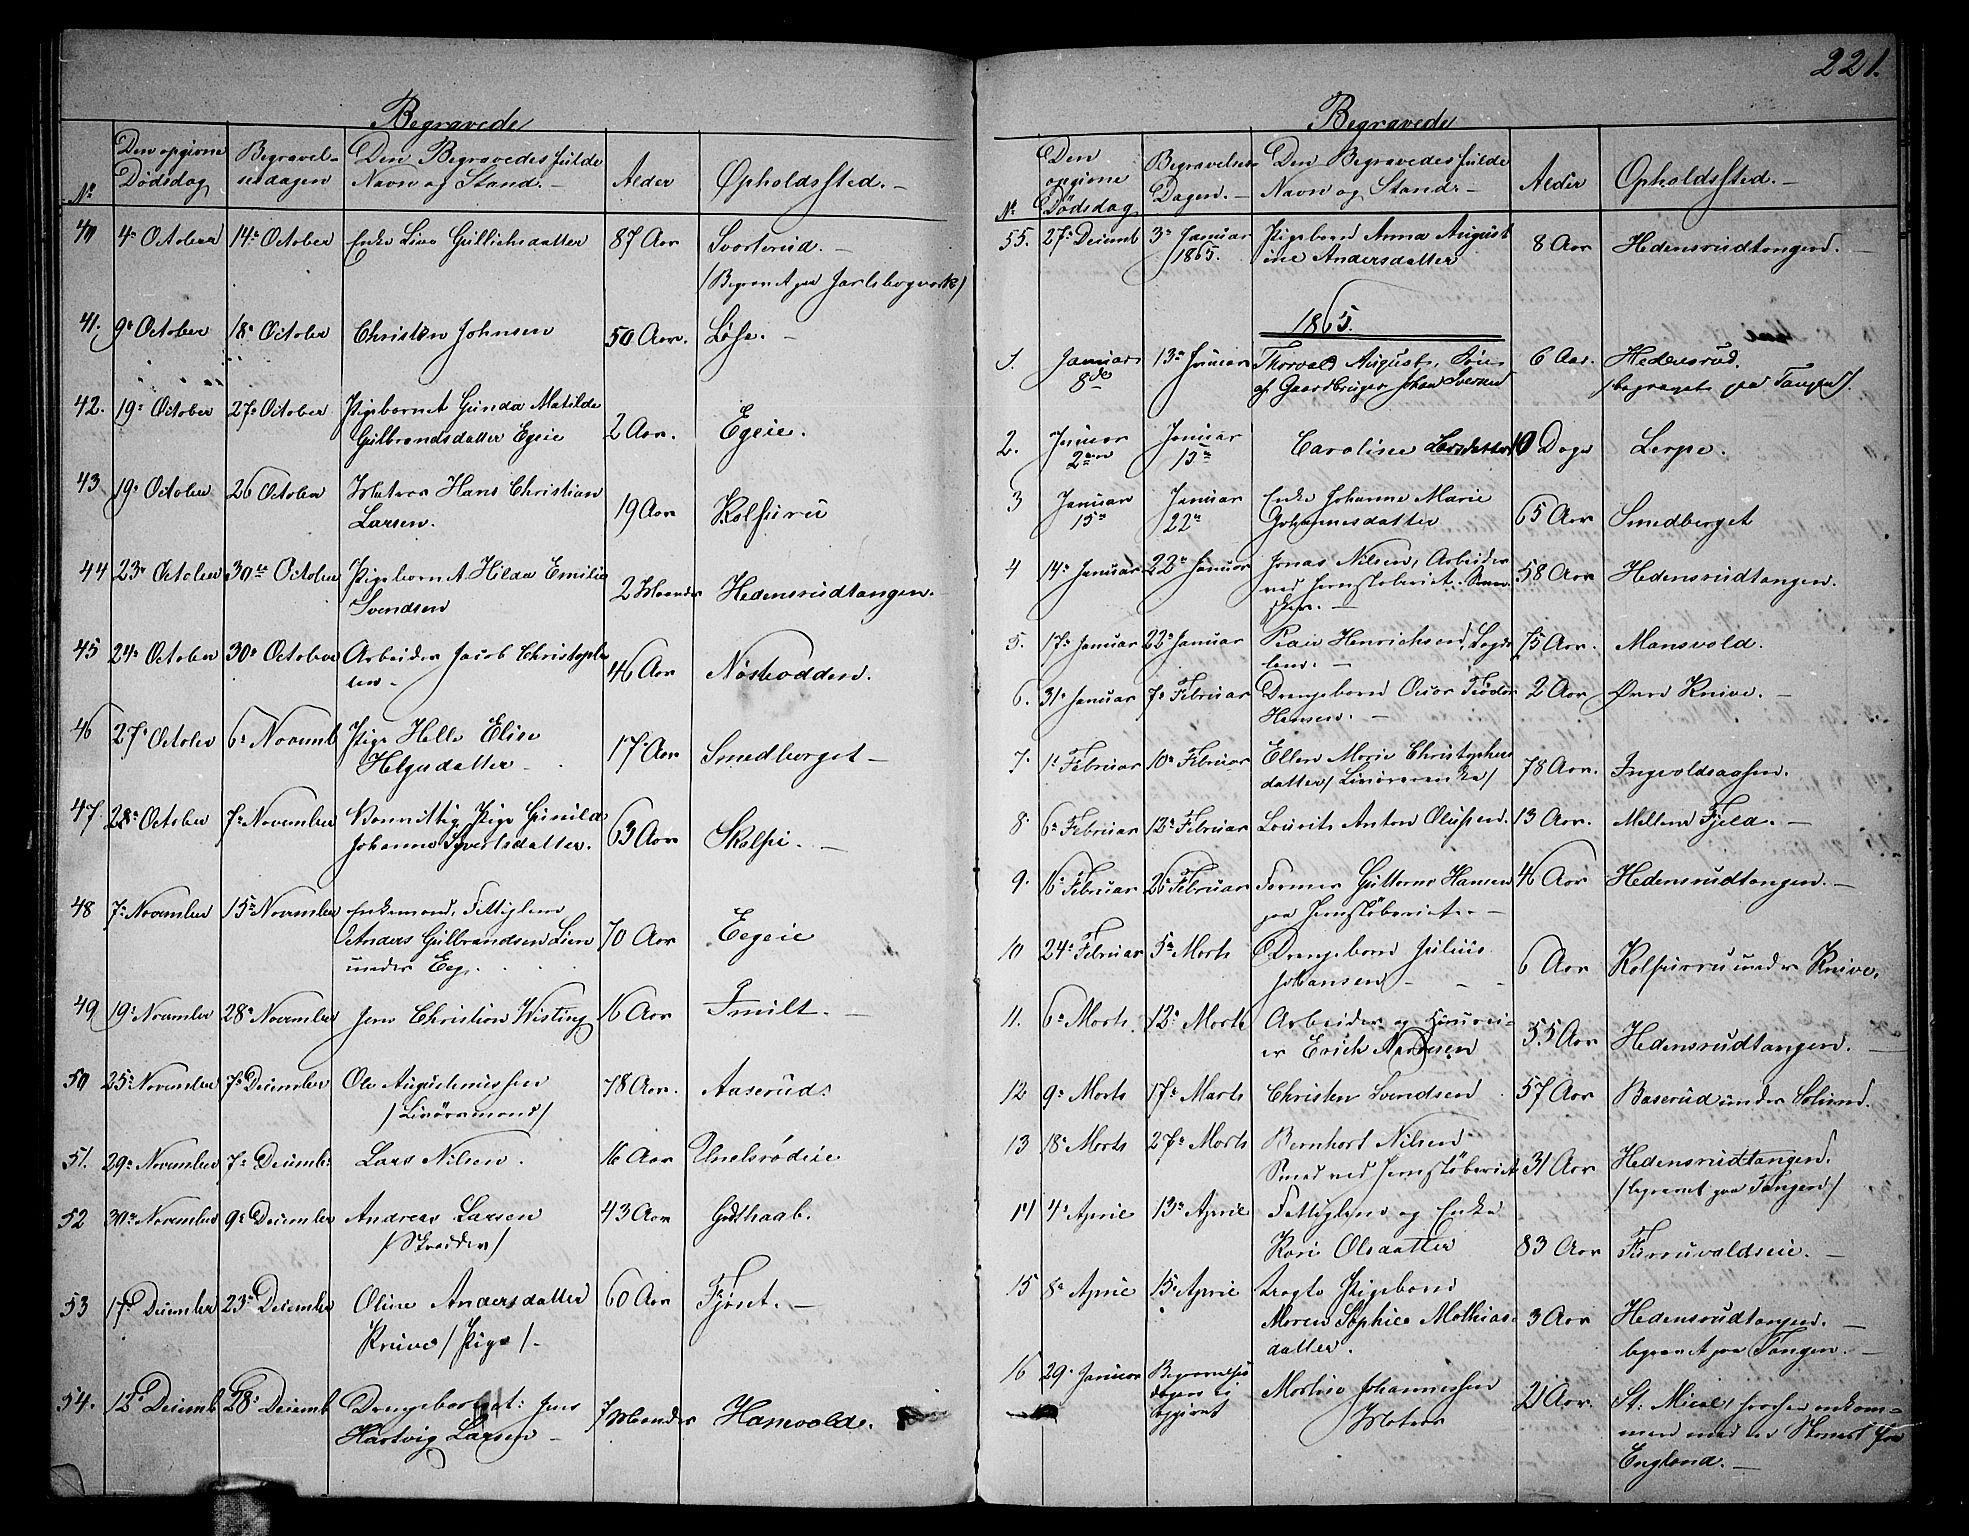 221.
Begravede
No
Den opgivne Dödsdag
Begravelsesdagen
Den Begravedes fulde Navn og Stand. -
Alder
Opholdssted. -
40 4de October 14de October Enke Live Gullichsdatter 87 Aar Svarterud. -
/Begravet paa Jarlsbergværk/
41. 9de October 18de October Christen Johnsen 50 Aar.
42. 19de October 27de October Pigebarnet Gunda Matilde
Gulbrandsdatter Egeie 2 Aar. Egeie.
43 19de October 26 October Matros Hans Christian
Larsen. 19 Aar Kolfuru
44 23de October 30te October Pigebarnet Hilda Emilie
Svendsen 2 Maaneder Hedensrudtangen.
45 24de October 30de October Arbeider Jacob Christophe
sen - 46 Aar Nøstodden.
46 27de October 6de Novemb Pige Helle Elise
Helgesdatter - 17 Aar Smedberget -
47. 28de October 7de November Vanvittig Pige Gunild
Johanne Syvertsdatter. 63 Aar Skalpi. -
48 7de November 15de November Enkemand, Fattiglem
Anders Gulbrandsen Lien 70 Aar Eegeie
under Eeg.
49 19de November 28de November Jens Christian Wisting 16 Aar
50 25de November 7de December Ole Augustinussen 78 Aar. Aaserud
/Livöresmand/
51. 29de November 7de Decemb: Lars Nilsen. 16 Aar
52 30te November 9de December Andreas Larsen 43 Aar Godthaab.
/Skrædder/
53 17de December 23de December Oline Andersdatter 60 Aar
Knive /Pige/ -
54. 12te Decemb 28de Decemb Drengebarnet: Jens
Hartvig Larsen - 7 Maaneder Hamvolde.
Begravede
No
Den opgivne Dödsdag
Begravelses Dagen. -
Den Begravedes fulde Navn og Stand -
Alder
Opholdssted. -
55. 27de Decemb 3de Januar 1865. Pigebarn Anna August
ine Andersdatter 8 Aar Hedensrudtangen. -
1865.
1. Januar 8de 13de Januar Thorvald August, Søn
af Gaardbruger Johan Iversen 6 Aar. Hedensrud.
/begravet paa Tangen/.
2. Januar 2den Januar 13de Caroline Larsdatter 10 Dage Lerpe.
3 Januar 15de Januar 22de Enke Johanne Marie
Johannesdatter 65 Aar Smedberget
4 14de Januar 22de Januar Jonas Nilsen, Arbeider
ved Jernstöberiet. Sven
sker. - 58 Aar Hedensrudtangen.
5. 17de Januar 22de Januar Henrichsen, Lægds
lem. - 75 Aar. Mansvold.
6. 31te Januar 7de Februar Drengebarn Oscar Teodor
Hansen. - 2 Aar Øvre Knive. -
7. 1te Februar 10de Februar Ellen Marie Christophers
datter / Livöresenke/ 78 Aar. Ingvoldsaasen.
8 6te Februar 12te Februar Lourits Anton Olufsen. 13 Aar. Mellem Fjeld. -
9. 16de Februar 26de Februar Former Guttorm Hansen
paa Jernstöberiet. - 46 Aar Hedensrudtangen. -
10 24de Februar 5te Marts Drengebarn Julius
Johansen - - - 6 Aar Kolfurru under Knive.
11. 6te Marts 12te Marts Arbeider og
er Erich 55 Aar Hedensrudtangen. -
12 9de Marts 17de Marts Christen Svendsen 57 Aar Baserud under Solund.
13 18de Marts 27de Marts Bernhart Nilsen
Smed ved Jernstöberiet 31 Aar Hedensrudtangen.
/begravet paa Tangen/
14 4de April 13de April Fattiglem og Enke
Kari Olsdatter 83 Aar Furruvaldseie. -
15 8de April 15de April Pigebarn
Maren Sophie Mathias
datter. 3 Aar Hedensrudtangen. -
begravet paa Tangen. -
16 29de Januar Begravelses
dagen ei
opgivet Mathias Johannessen
Matros 21 Aar. omkom=
men med et Skonnert fra
England. -